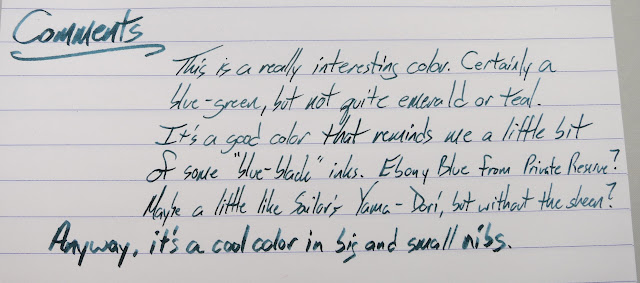 Comments
This is a really interesting color. Certainly a
blue-green, but not quite emerald or teal.
It's a good color that reminds me a little bit
of some "blue-black" inks. Ebony Blue from Private Reserve?
Maybe a little like Sailor's Yama-Dori, but without the sheen?
Anyway, it's a cool color in big and small nibs.